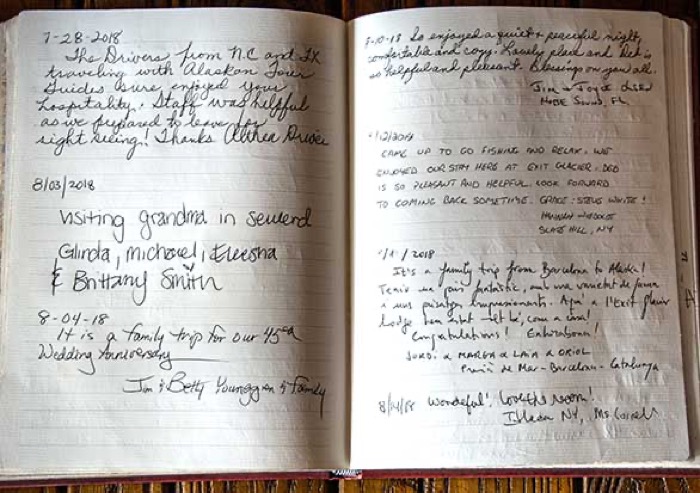 7-28-2018
The Drivers from N.C and TX
traveling with Alaskan Tour
Guides sure enjoyed your
hospitality. Staff was helpful
as we prepared to leave for
sight seeing! Thanks Althea Driver
8/03/2018
Visiting grandma in seward
Glinda, michael,
& Brittany Smith
8-04-18
It is a family trip for our 45th
Wedding Anniversary
Jim & Betty Younggren & family
8-10-18 So enjoyed a quiet & peaceful night,
comfortable and cozy. Lovely place and Deb is
so helpful and pleasant. Blessings on you all.
Jim & Joyce
HOBE Sound, FL.
/12/2018
CAME UP TO GO FISHING AND RELAX. WE
ENJOYED OUR STAY HERE AT EXIT GLACIER. DEB
IS SO PLEASANT AND HELPFUL. LOOK FORWARD
TO COMING BACK SOMETIME. GRACE & STEVE WHITE!
HANNAH
SLATE HILL, NY
/ 2018
It's a family trip from Barcelona to Alaska!
Teniu un país fantàstic, amb una varietat de fauna
i uns paisatges impressionants. Aquí a l'Exit Glacier
Lodge hem estat molt bé, com a casa!
Congratulations! Enhorabona!
JORDI & MARGA & LAIA & ORIOL
Premià de Mar - Barcelona - Catalunya
8/14/18 Wonderful! love the room!
Ithaca NY, Ms.